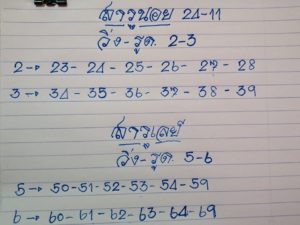 สารูนอย 24-11
วิ่ง-รูด. 2-3
2→ 23- 24- 25- 26- 27- 28
3→ 34- 35- 36- 37- 38- 39
สารูเลย์
วิ่ง-รูด. 5-6
5→ 50-51-52-53-54-59
6→ 60-61-62-63-64-69